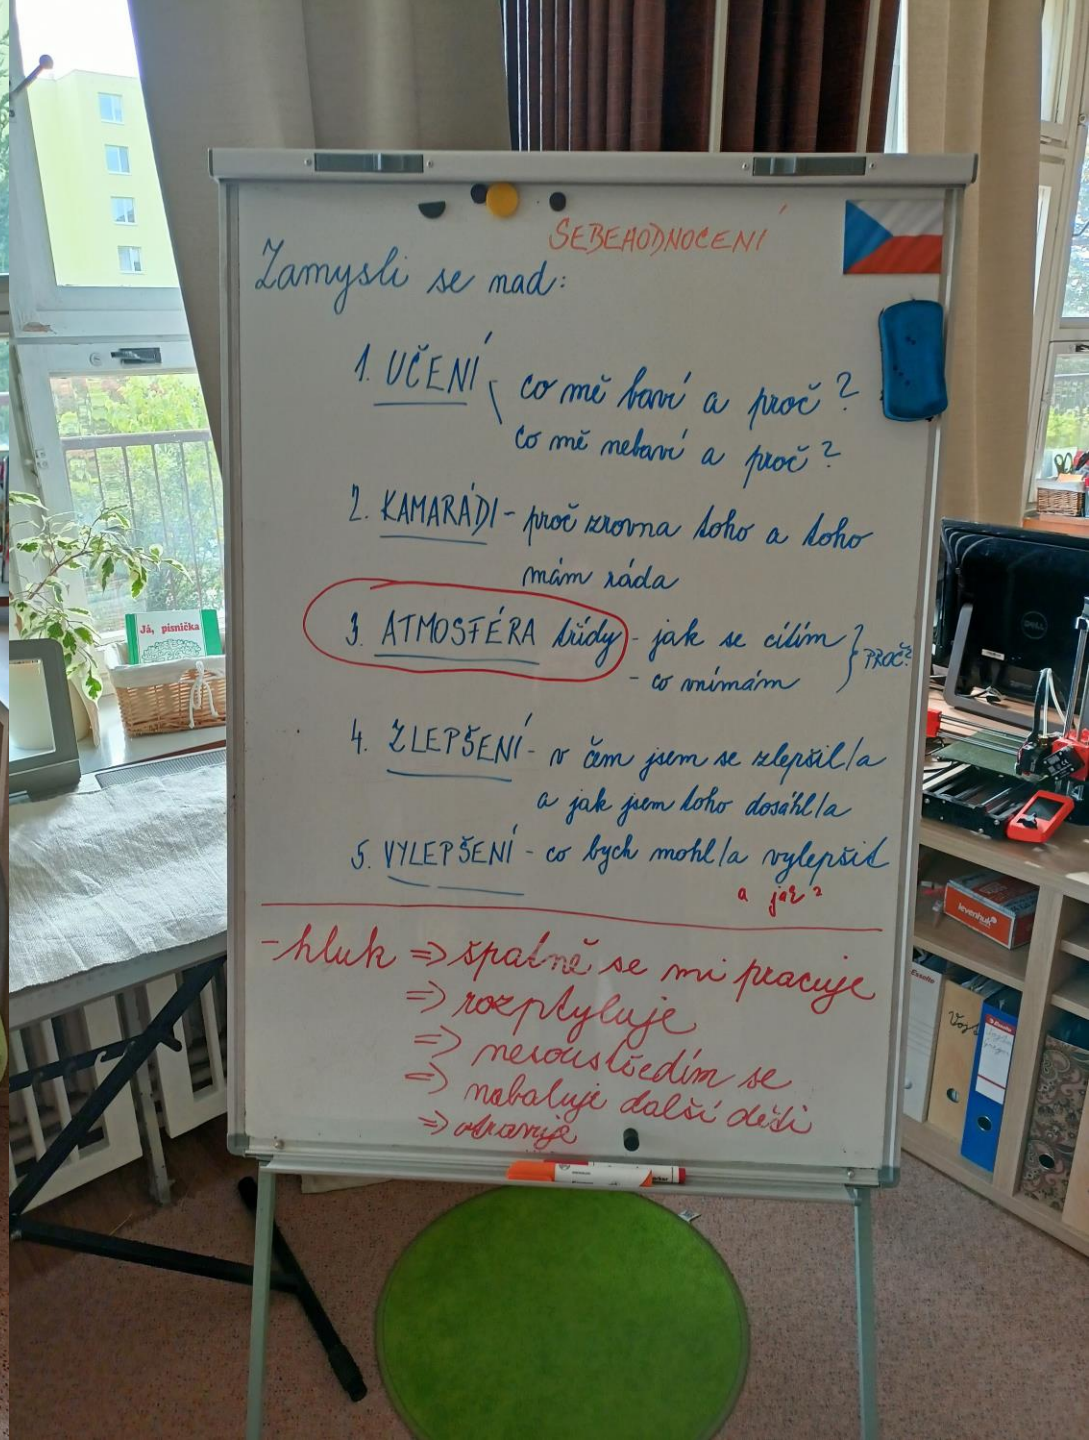 SEBEHODNOCENÍ
Zamysli se nad:
1. UČENÍ
co mě baví a proč?
co mě nebaví a proč?
2. KAMARÁDI - proč zrovna toho a toho
mám ráda
3. ATMOSFÉRA třídy - jak se cítím
- co vnímám
} PROČ?
4. ZLEPŠENÍ - v čem jsem se zlepšil/a
a jak jsem toho dosáhl/a
5. VYLEPŠENÍ - co bych mohl/a vylepšit
a jak?
- hluk => špatně se mi pracuje
=> rozptyluje
=> nesoustředím se
=> nabaluje další děti
=> otravuje
Já, písnička
DELL
levenhuk
Esselte